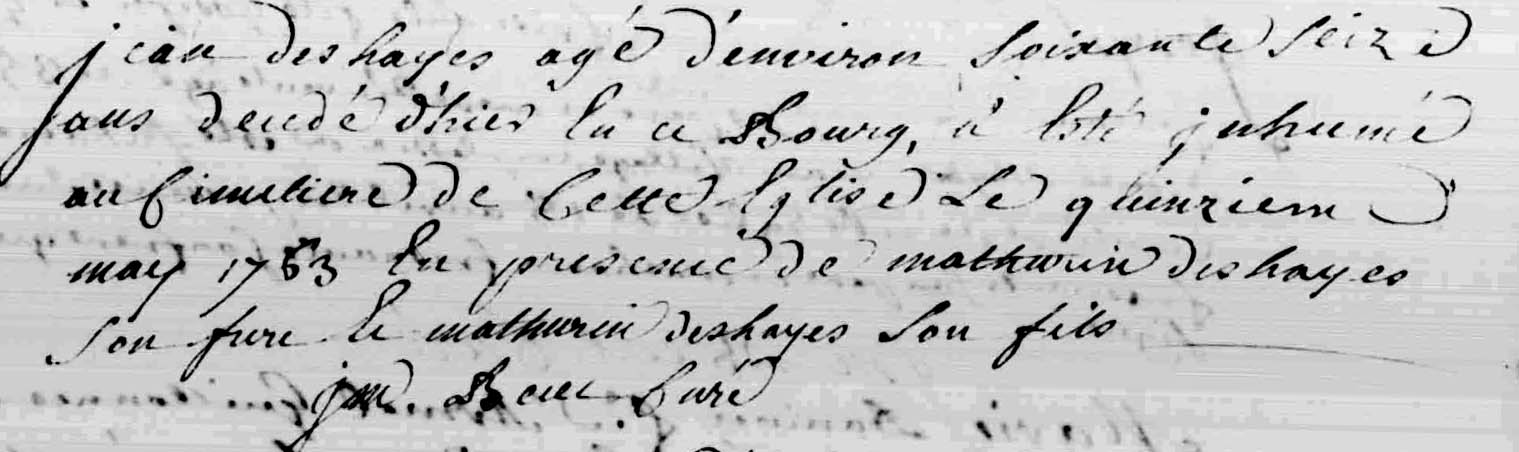 jean deshayes agé d'environ soixante seize
ans decedé d'hier en ce Bourg, a esté inhumé
au Cimetiere de Cette Eglise Le quinzieme
may 1753 En presence de mathurin deshayes
son frere Et mathurin deshayes son fils
curé